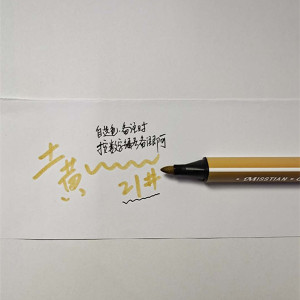 自选色.备注时
按数字编号备注即可
土黄
21#
MISSTIAN